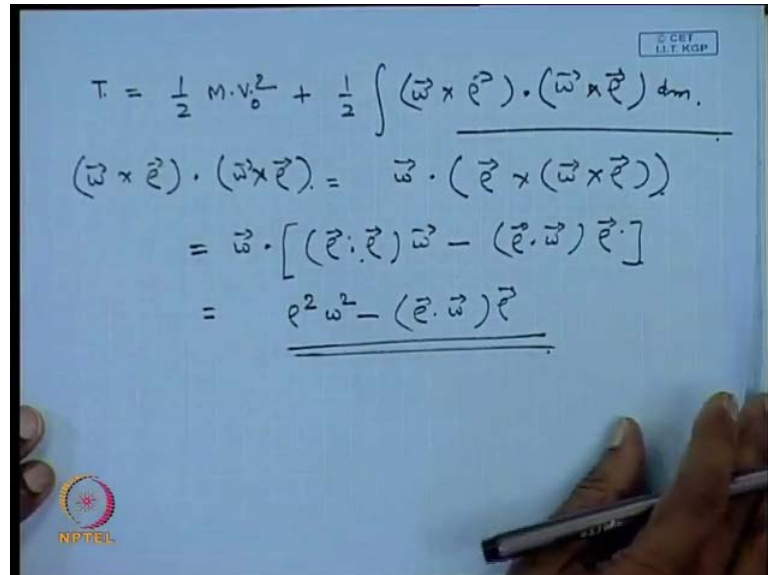 © CET
I.I.T. KGP
T. = 1/2 M.V₀² + 1/2 ∫ (ω⃗ × ρ⃗) · (ω⃗ × ρ⃗) dm.
(ω⃗ × ρ⃗) · (ω⃗ × ρ⃗). = ω⃗ · (ρ⃗ × (ω⃗ × ρ⃗))
= ω⃗ · [(ρ⃗ · ρ⃗) ω⃗ − (ρ⃗ · ω⃗) ρ⃗]
= ρ² ω² − (ρ⃗ · ω⃗) ρ⃗
NPTEL